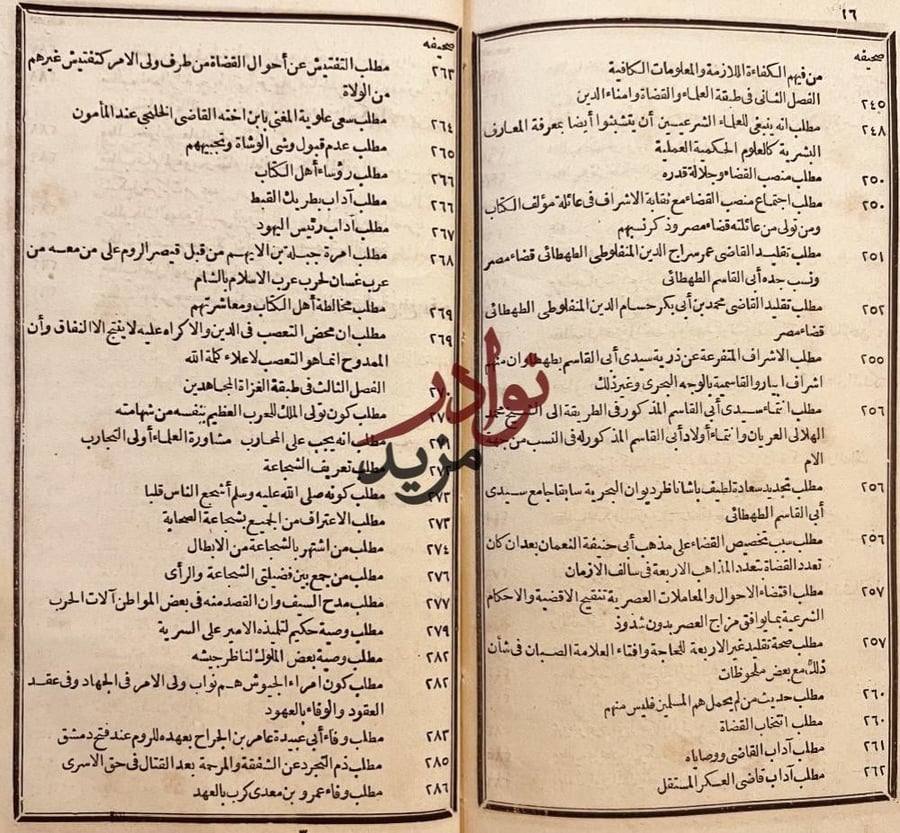 ١٦
صحيفه
من فيهم الكفاءة اللازمة والمعلومات الكافية
٢٤٥ الفصل الثانى فى طبقة العلماء والقضاة وامناء الدين
٢٤٨ مطلب انه ينبغى للعلماء الشرعيين أن يتشبثوا أيضا بمعرفة المعارف
البشرية كالعلوم الحكمية العملية
٢٥٠ مطلب منصب القضاء وجلالة قدره
٢٥٠ مطلب اجتماع منصب القضاء مع نقابة الاشراف فى عائلة مؤلف الكتاب
ومن تولى من عائلته قضاء مصر وذكر نسبهم
٢٥١ مطلب تقليد القاضى عمر سراج الدين المنفلوطى الطهطائى قضاء مصر
ونسب جده أبى القاسم الطهطائى
٢٥٢ مطلب تقليد القاضى محمد بن أبى بكر حسام الدين المنفلوطى الطهطائى
قضاء مصر
٢٥٥ مطلب الاشراف المتفرعة عن ذرية سيدى أبى القاسم بطهطا وان منهم
اشراف ابيار والقاسمية بالوجه البحرى وغير ذلك
٢٥٦ مطلب انتماء سيدى أبى القاسم المذكور فى الطريقة الى الشيخ محمد
الهلالى العريان وانتماء أولاد أبى القاسم المذكور له فى النسب من جهة
الام
٢٥٦ مطلب تجديد سعادة لطيف باشا ناظر ديوان البحرية سابقا جامع سيدى
أبى القاسم الطهطائى
٢٥٦ مطلب سبب تخصيص القضاء على مذهب أبى حنيفة النعمان بعد ان كان
تعدد القضاة بتعدد المذاهب الاربعة فى سالف الازمان
٢٥٧ مطلب اقتضاء الاحوال والمعاملات العصرية تنقيح الاقضية والاحكام
الشرعية بما يوافق مزاج العصر بدون شذوذ
٢٥٧ مطلب صحة تقليد غير الاربعة للحاجة وافتاء العلامة الصبان فى شأن
ذلك مع بعض ملحوظات
٢٦٠ مطلب حديث من لم يحمل هم المسلمين فليس منهم
٢٦٠ مطلب انتخاب القضاة
٢٦١ مطلب آداب القاضى ووصاياه
٢٦٢ مطلب آداب قاضى العسكر المستقل
صحيفه
٢٦٣ مطلب التفتيش عن أحوال القضاة من طرف ولى الامر كتفتيش غيرهم
من الولاة
٢٦٤ مطلب سعى علوية المغنى بابن اخته القاضى الخلنجى عند المأمون
٢٦٥ مطلب عدم قبول وشى الوشاة وتجبيههم
٢٦٦ مطلب رؤساء أهل الكتاب
٢٦٦ مطلب آداب بطريك القبط
٢٦٧ مطلب آداب رئيس اليهود
٢٦٨ مطلب امرة جبلة بن الايهم من قبل قيصر الروم على من معه من
عرب غسان لحرب عرب الاسلام بالشام
٢٦٩ مطلب مخالطة أهل الكتاب ومعاشرتهم
٢٦٩ مطلب ان محض التعصب فى الدين والاكراه عليه لا ينتج الا النفاق وأن
الممدوح انما هو التعصب لاعلاء كلمة الله
الفصل الثالث فى طبقة الغزاة المجاهدين
مطلب كون تولى الملك للحرب العظيم بنفسه من شهامته
مطلب انه يجب على المحارب مشاورة العلماء أولى التجارب
٢٧٢ مطلب تعريف الشجاعة
٢٧٣ مطلب كونه صلى الله عليه وسلم أشجع الناس قلبا
٢٧٣ مطلب الاعتراف من الجميع بشجاعة الصحابة
٢٧٤ مطلب من اشتهر بالشجاعة من الابطال
٢٧٦ مطلب من جمع بين فضيلتى الشجاعة والرأى
٢٧٧ مطلب مدح السيف وان القصد منه فى بعض المواطن آلات الحرب
٢٧٩ مطلب وصية حكيم لتلميذه الامير على السرية
٢٨٢ مطلب وصية بعض الملوك لناظر جيشه
٢٨٢ مطلب كون امراء الجيوش هم نواب ولى الامر فى الجهاد وفى عقد
العقود والوفاء بالعهود
٢٨٣ مطلب وفاء أبى عبيدة عامر بن الجراح بعهده للروم عند فتح دمشق
٢٨٥ مطلب ذم التجرد عن الشفقة والمرحمة بعد القتال فى حق الاسرى
٢٨٦ مطلب وفاء عمرو بن معدى كرب بالعهد
نوادر
مزيد